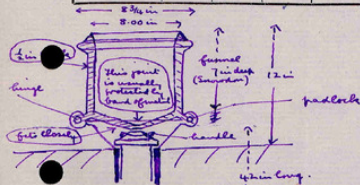 8 3/4 in
8.00 in
1/2 in
funnel
7 in deep
(Snowdon)
12 in
This joint
is usually
protected by
band of metal
hinge
padlock
fits closely
handle
42 in long.